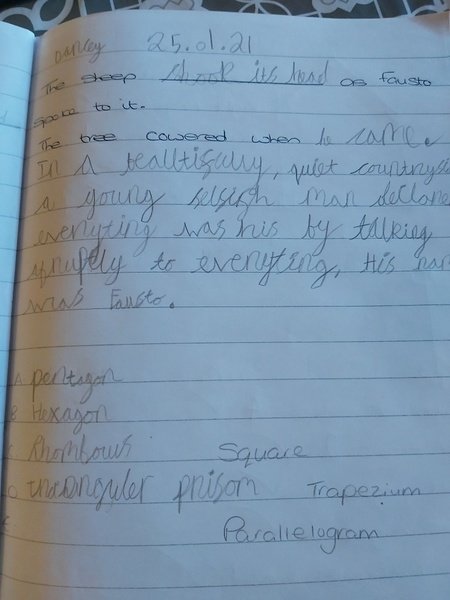 Dancey 25.01.21
The sheep shook its head as Fausto
spoke to it.
The tree cowered when he came.
In A beautifully, quiet countrysi
a young selsigh man declare
everyting was his by talking
afruptly to everyting, His nam
was Fausto.
A pentagon
B Hexagon
C Rhombous Square
D trianguler prisom Trapezium
E Parallelogram